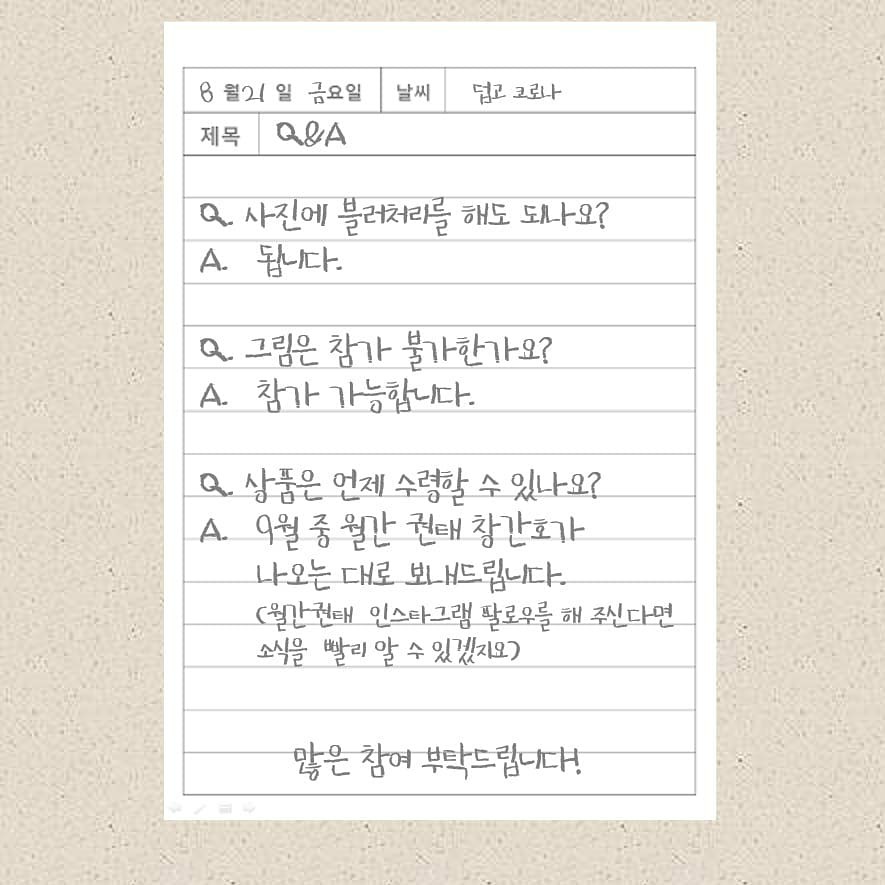 8 월 21 일 금요일 날씨 덥고 코로나
제목 Q&A
Q. 사진에 블러처리를 해도 되나요?
A. 됩니다.
Q. 그림은 참가 불가한가요?
A. 참가 가능합니다.
Q. 상품은 언제 수령할 수 있나요?
A. 9월 중 월간 권태 창간호가
나오는 대로 보내드립니다.
(월간권태 인스타그램 팔로우를 해 주신다면
소식을 빨리 알 수 있겠지요)
많은 참여 부탁드립니다!